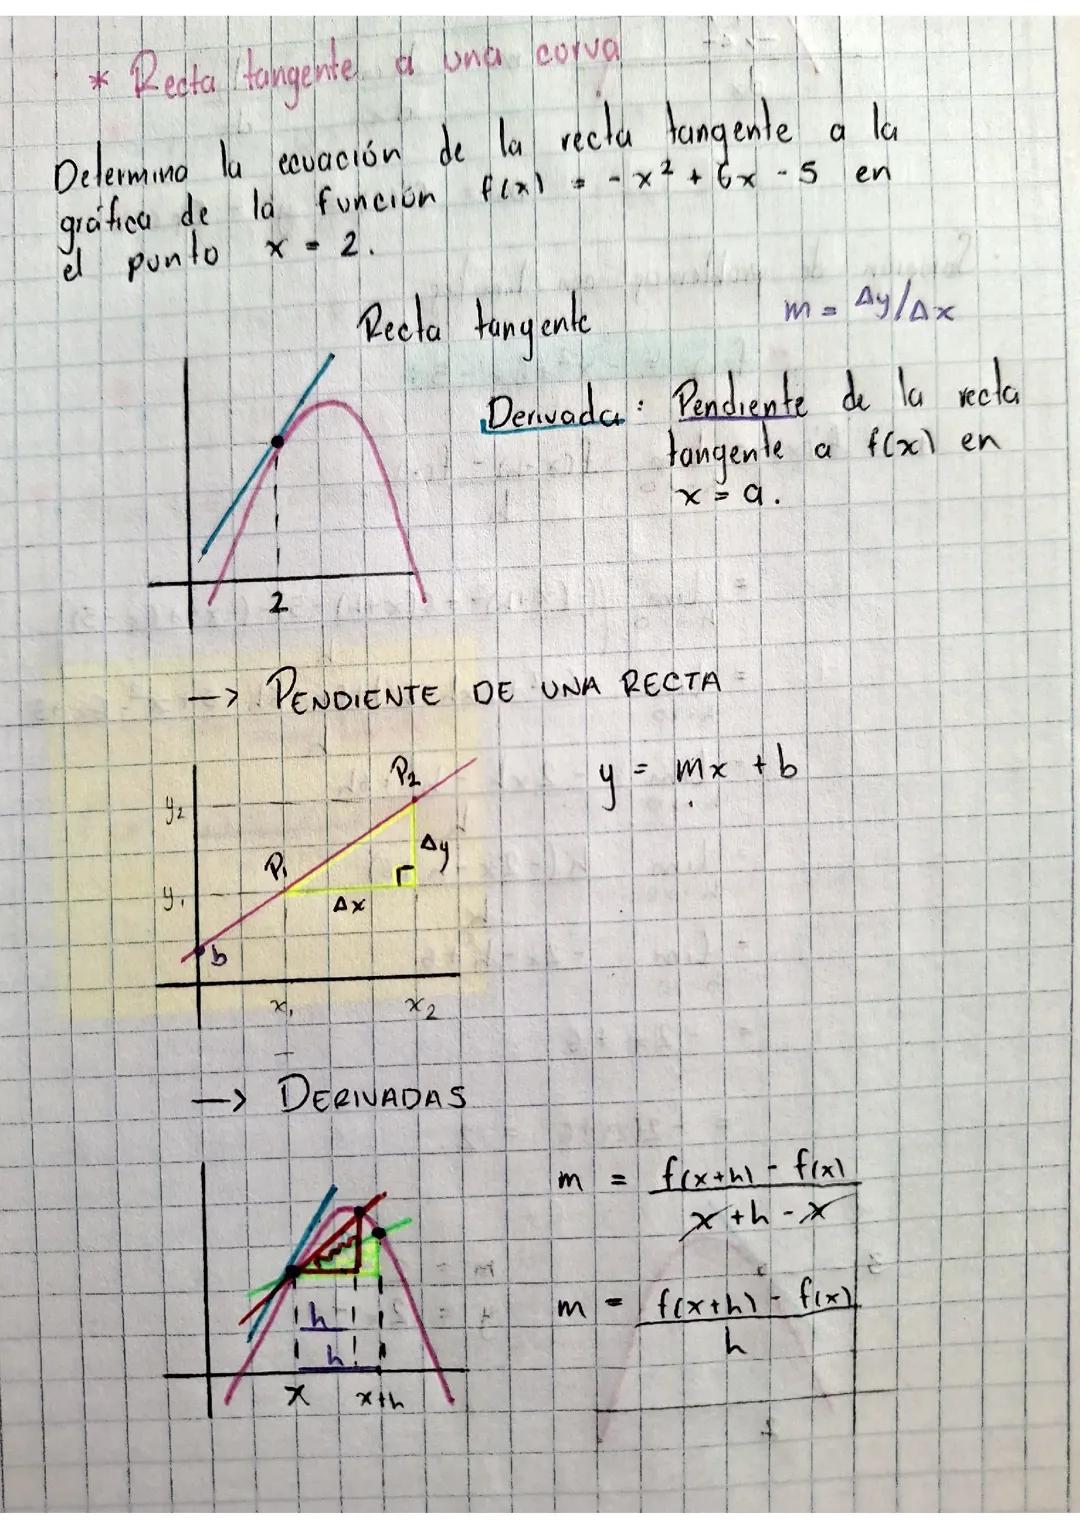 * Recta tangente a una corva
Determina la ecuación de la recta tangente a la
gráfica de la función f(x) = -x² + 6x - 5 en
el punto x = 2.
Recta tangente
m = Δy/Δx
Derivada: Pendiente de la recta
tangente a f(x) en
x = a.
2
-> PENDIENTE DE UNA RECTA
y = mx + b
P₂
y₂
Δy
P₁
y₁
Δx
b
x₁ x₂
-> DERIVADAS
m = f(x+h) - f(x) / x+h-x
m = f(x+h) - f(x) / h
h
h
x x+h